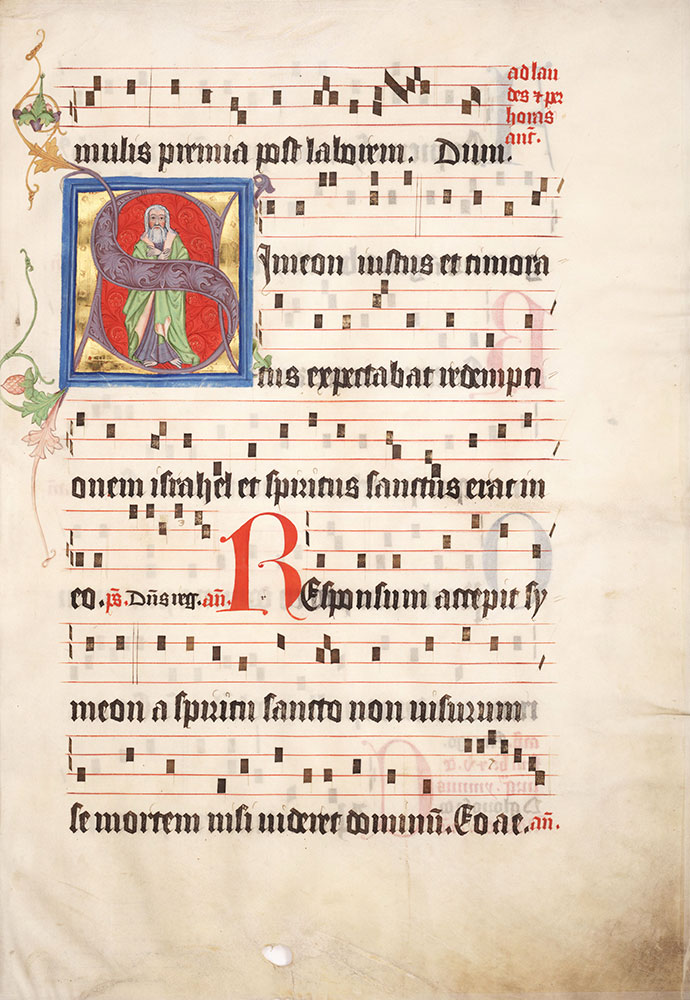 ad lau
des ⁊ per
horas
ant.
mulis premia post laborem. Dum.
Simeon iustus et timora
tus expectabat redempti
onem israhel et spiritus sanctus erat in
eo. p̅s. Dn̅s reg. an̅. REsponsum accepit sy
meon a spiritu sancto non uisurum
se mortem nisi uideret dominu̅. Eo ae. an̅.